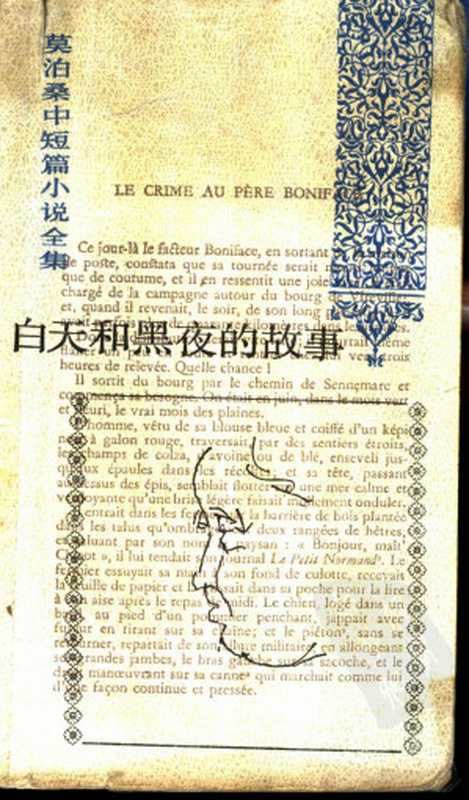 莫泊桑中短篇小说全集
LE CRIME AU PÈRE BONIFACE
Ce jour-là le facteur Boniface, en sortant
de poste, constata que sa tournée serait
que de coutume, et il en ressentit une joie
chargé de la campagne autour du bourg de
et, quand il revenait, le soir, de son long
白天和黑夜的故事
heures de relevée. Quelle chance !
Il sortit du bourg par le chemin de Sennemare et
commença sa besogne. On était en juin, dans le mois vert
et fleuri, le vrai mois des plaines.
L'homme, vêtu de sa blouse bleue et coiffé d'un képi
noir à galon rouge, traversait, par des sentiers étroits,
les champs de colza, d'avoine ou de blé, enseveli jus-
qu'aux épaules dans les récoltes, et sa tête, passant
au-dessus des épis, semblait flotter sur une mer calme et
verdoyante qu'une brise légère faisait mollement onduler.
Il entrait dans les fermes par la barrière de bois plantée
dans les talus qu'ombrageaient deux rangées de hêtres,
et saluant par son nom le paysan : « Bonjour, maît'
Chicot », il lui tendait son journal Le Petit Normand. Le
fermier essuyait sa main à son fond de culotte, recevait
la feuille de papier et la glissait dans sa poche pour la lire
à son aise après le repas de midi. Le chien, logé dans un
baril, au pied d'un pommier penchant, jappait avec
fureur en tirant sur sa chaîne; et le piéton, sans se
retourner, repartait de son allure militaire, en allongeant
ses grandes jambes, le bras gauche sur sa sacoche, et le
droit manœuvrant sur sa canne qui marchait comme lui
d'une façon continue et pressée.